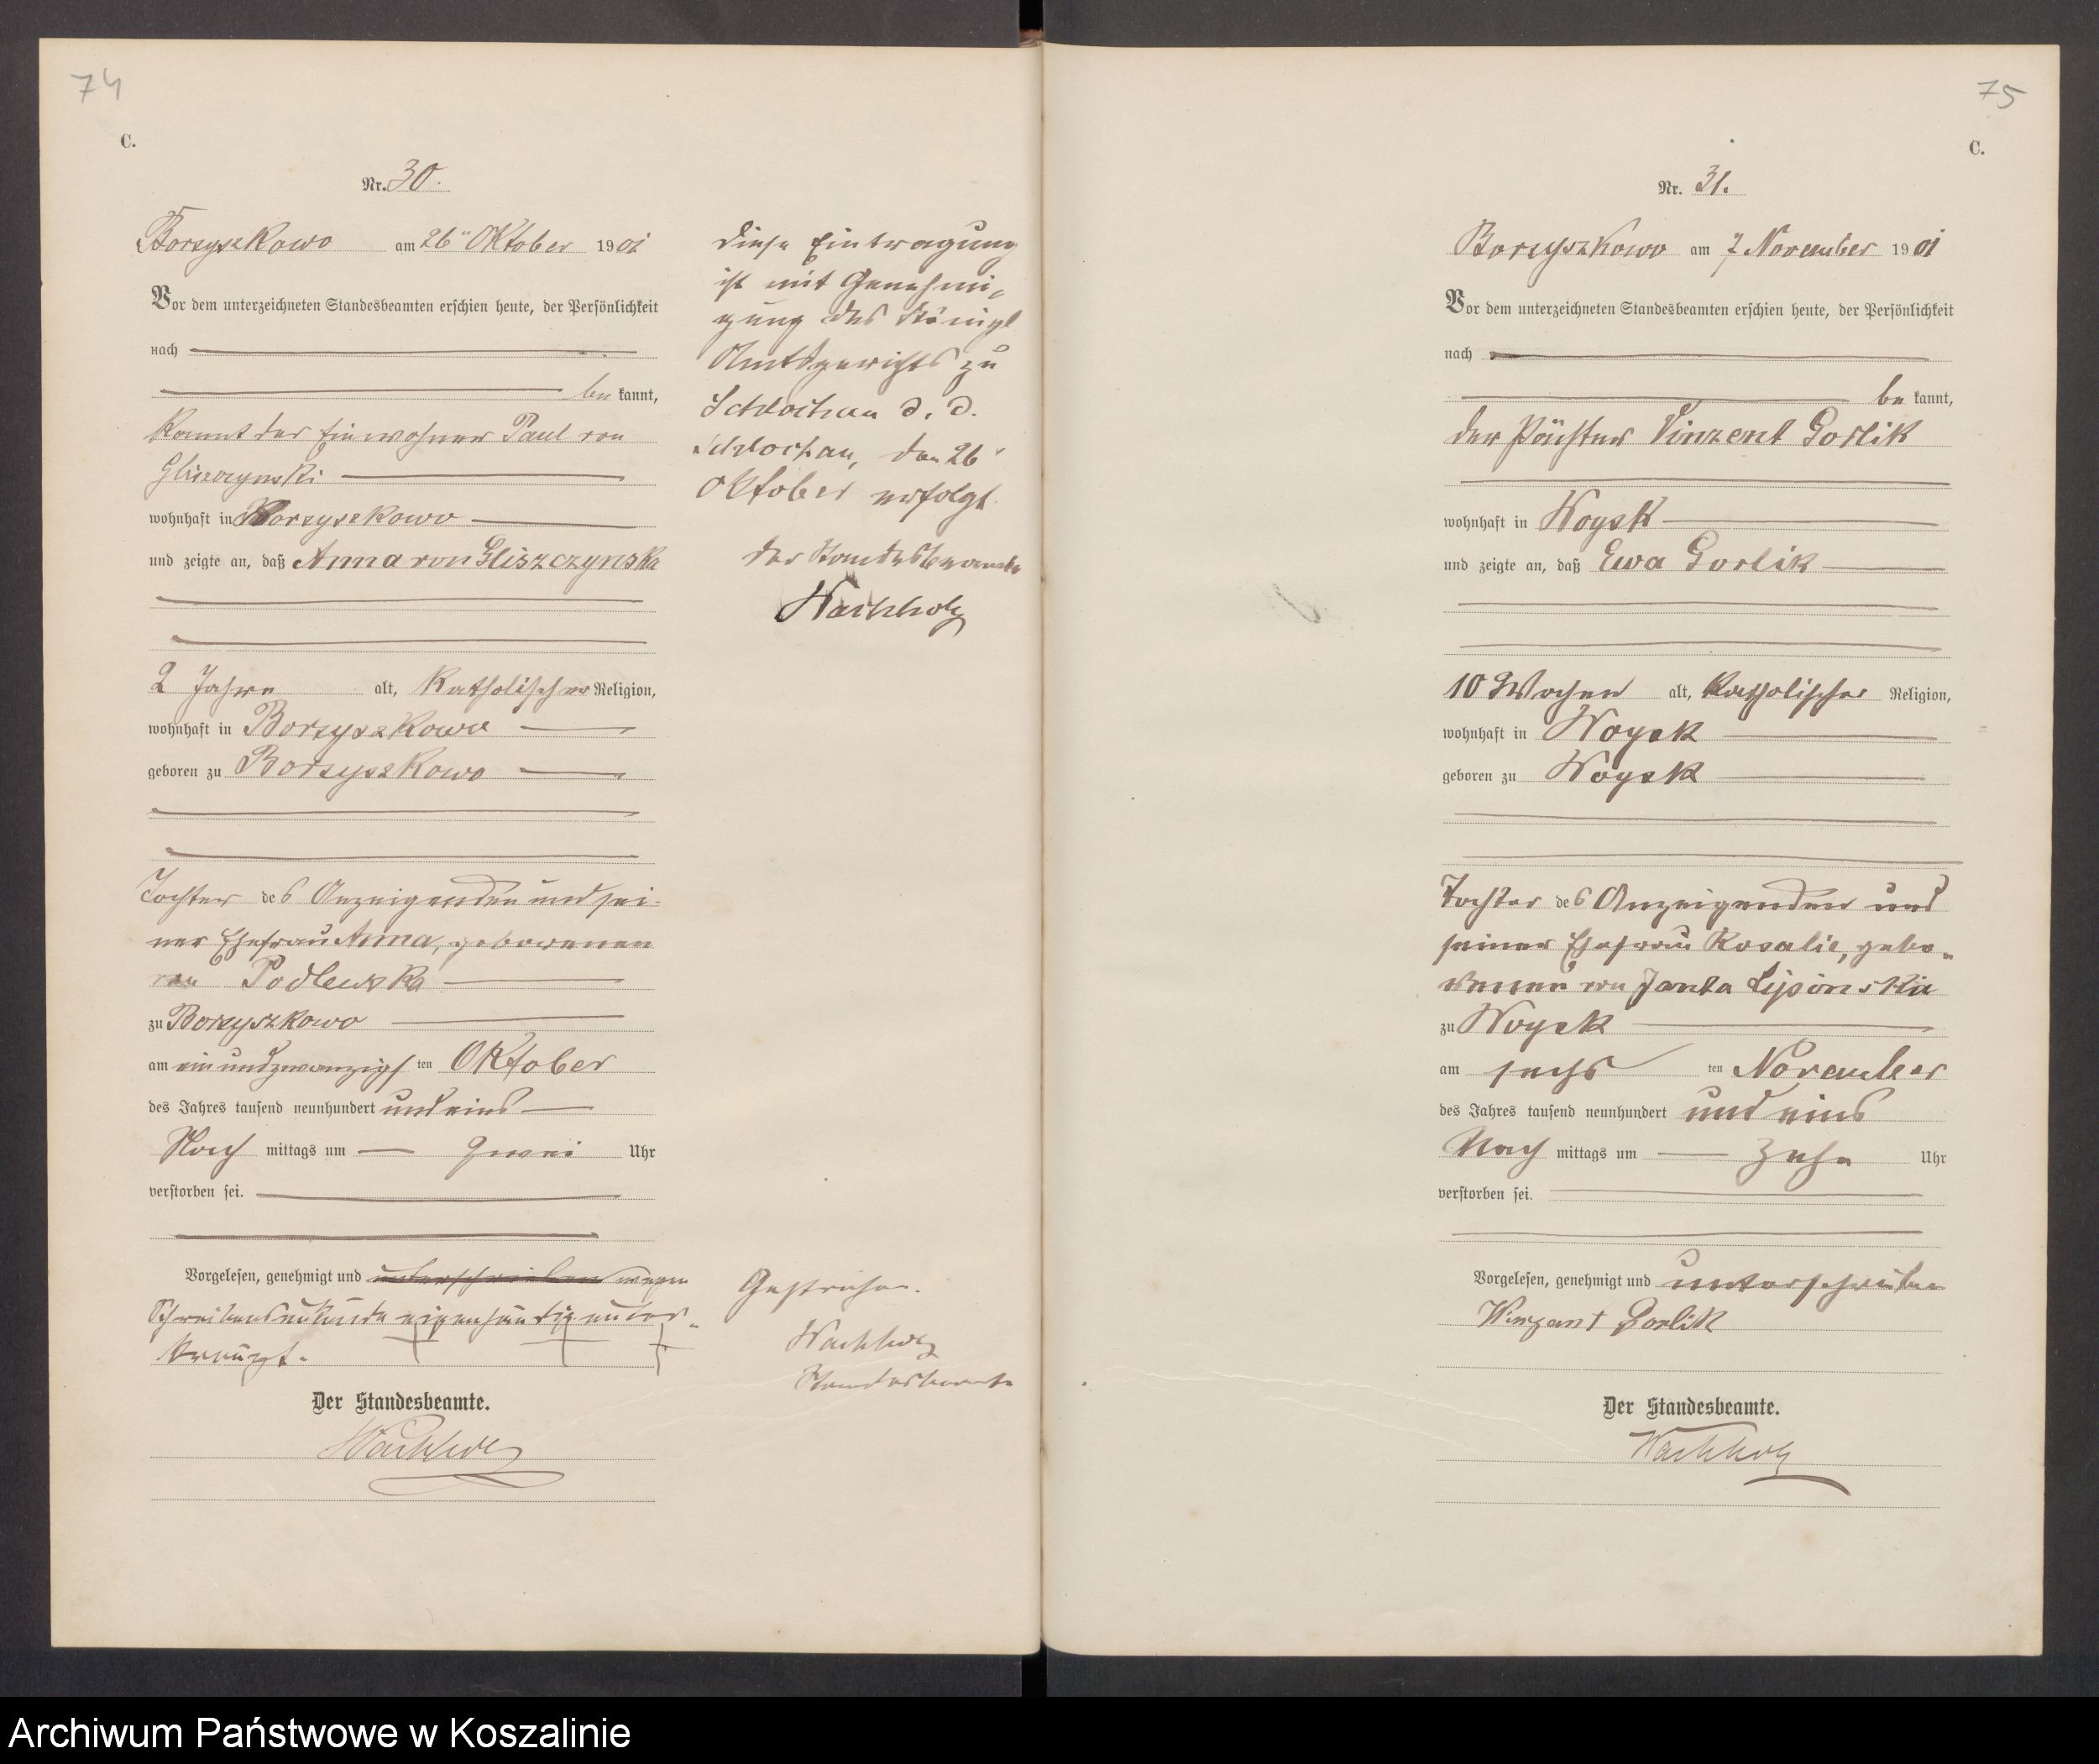 74
C.
Nr. 30.
Borzyszkowo am 26ten Oktober 1901
Vor dem unterzeichneten Standesbeamten erschien heute, der Persönlichkeit
nach
be kannt,
kannt der Einwohner Paul von
Gliszczynski
wohnhaft in Borzyszkowo
und zeigte an, daß Anna von Gliszczynska
2 Jahre alt, katholischer Religion,
wohnhaft in Borzyszkowo
geboren zu Borzyszkowo
Tochter des Anzeigenden und sei-
ner Ehefrau Anna, geborenen
von Podlewska
zu Borzyszkowo
am einundzwanzigs ten Oktober
des Jahres tausend neunhundert und eins
Nach mittags um zwei Uhr
verstorben sei.
Vorgelesen, genehmigt und unterschrieben wegen
Schreibensunkunde eigenhändig unter-
kreuzt. + + +
Der Standesbeamte.
Wachholz
Diese Eintragung
ist mit Genehmi-
gung des Königl
Amtsgerichts zu
Schlochau d. d.
Schlochau, den 26
Oktober erfolgt.
Der Standesbeamte
Wachholz
Gestrichen.
Wachholz
Standesbeamte
75
C.
Nr. 31.
Borzyszkowo am 7 November 1901
Vor dem unterzeichneten Standesbeamten erschien heute, der Persönlichkeit
nach
be kannt,
der Pächter Vinzent Gorlik
wohnhaft in Woysk
und zeigte an, daß Ewa Gorlik
10 Wochen alt, katholischer Religion,
wohnhaft in Woysk
geboren zu Woysk
Tochter des Anzeigenden und
seiner Ehefrau Rosalie, gebo-
renen von Janta Lipinska
zu Woysk
am sechs ten November
des Jahres tausend neunhundert und eins
Nach mittags um zehn Uhr
verstorben sei.
Vorgelesen, genehmigt und unterschrieben
Winzent Gorlik
Der Standesbeamte.
Wachholz
Archiwum Państwowe w Koszalinie